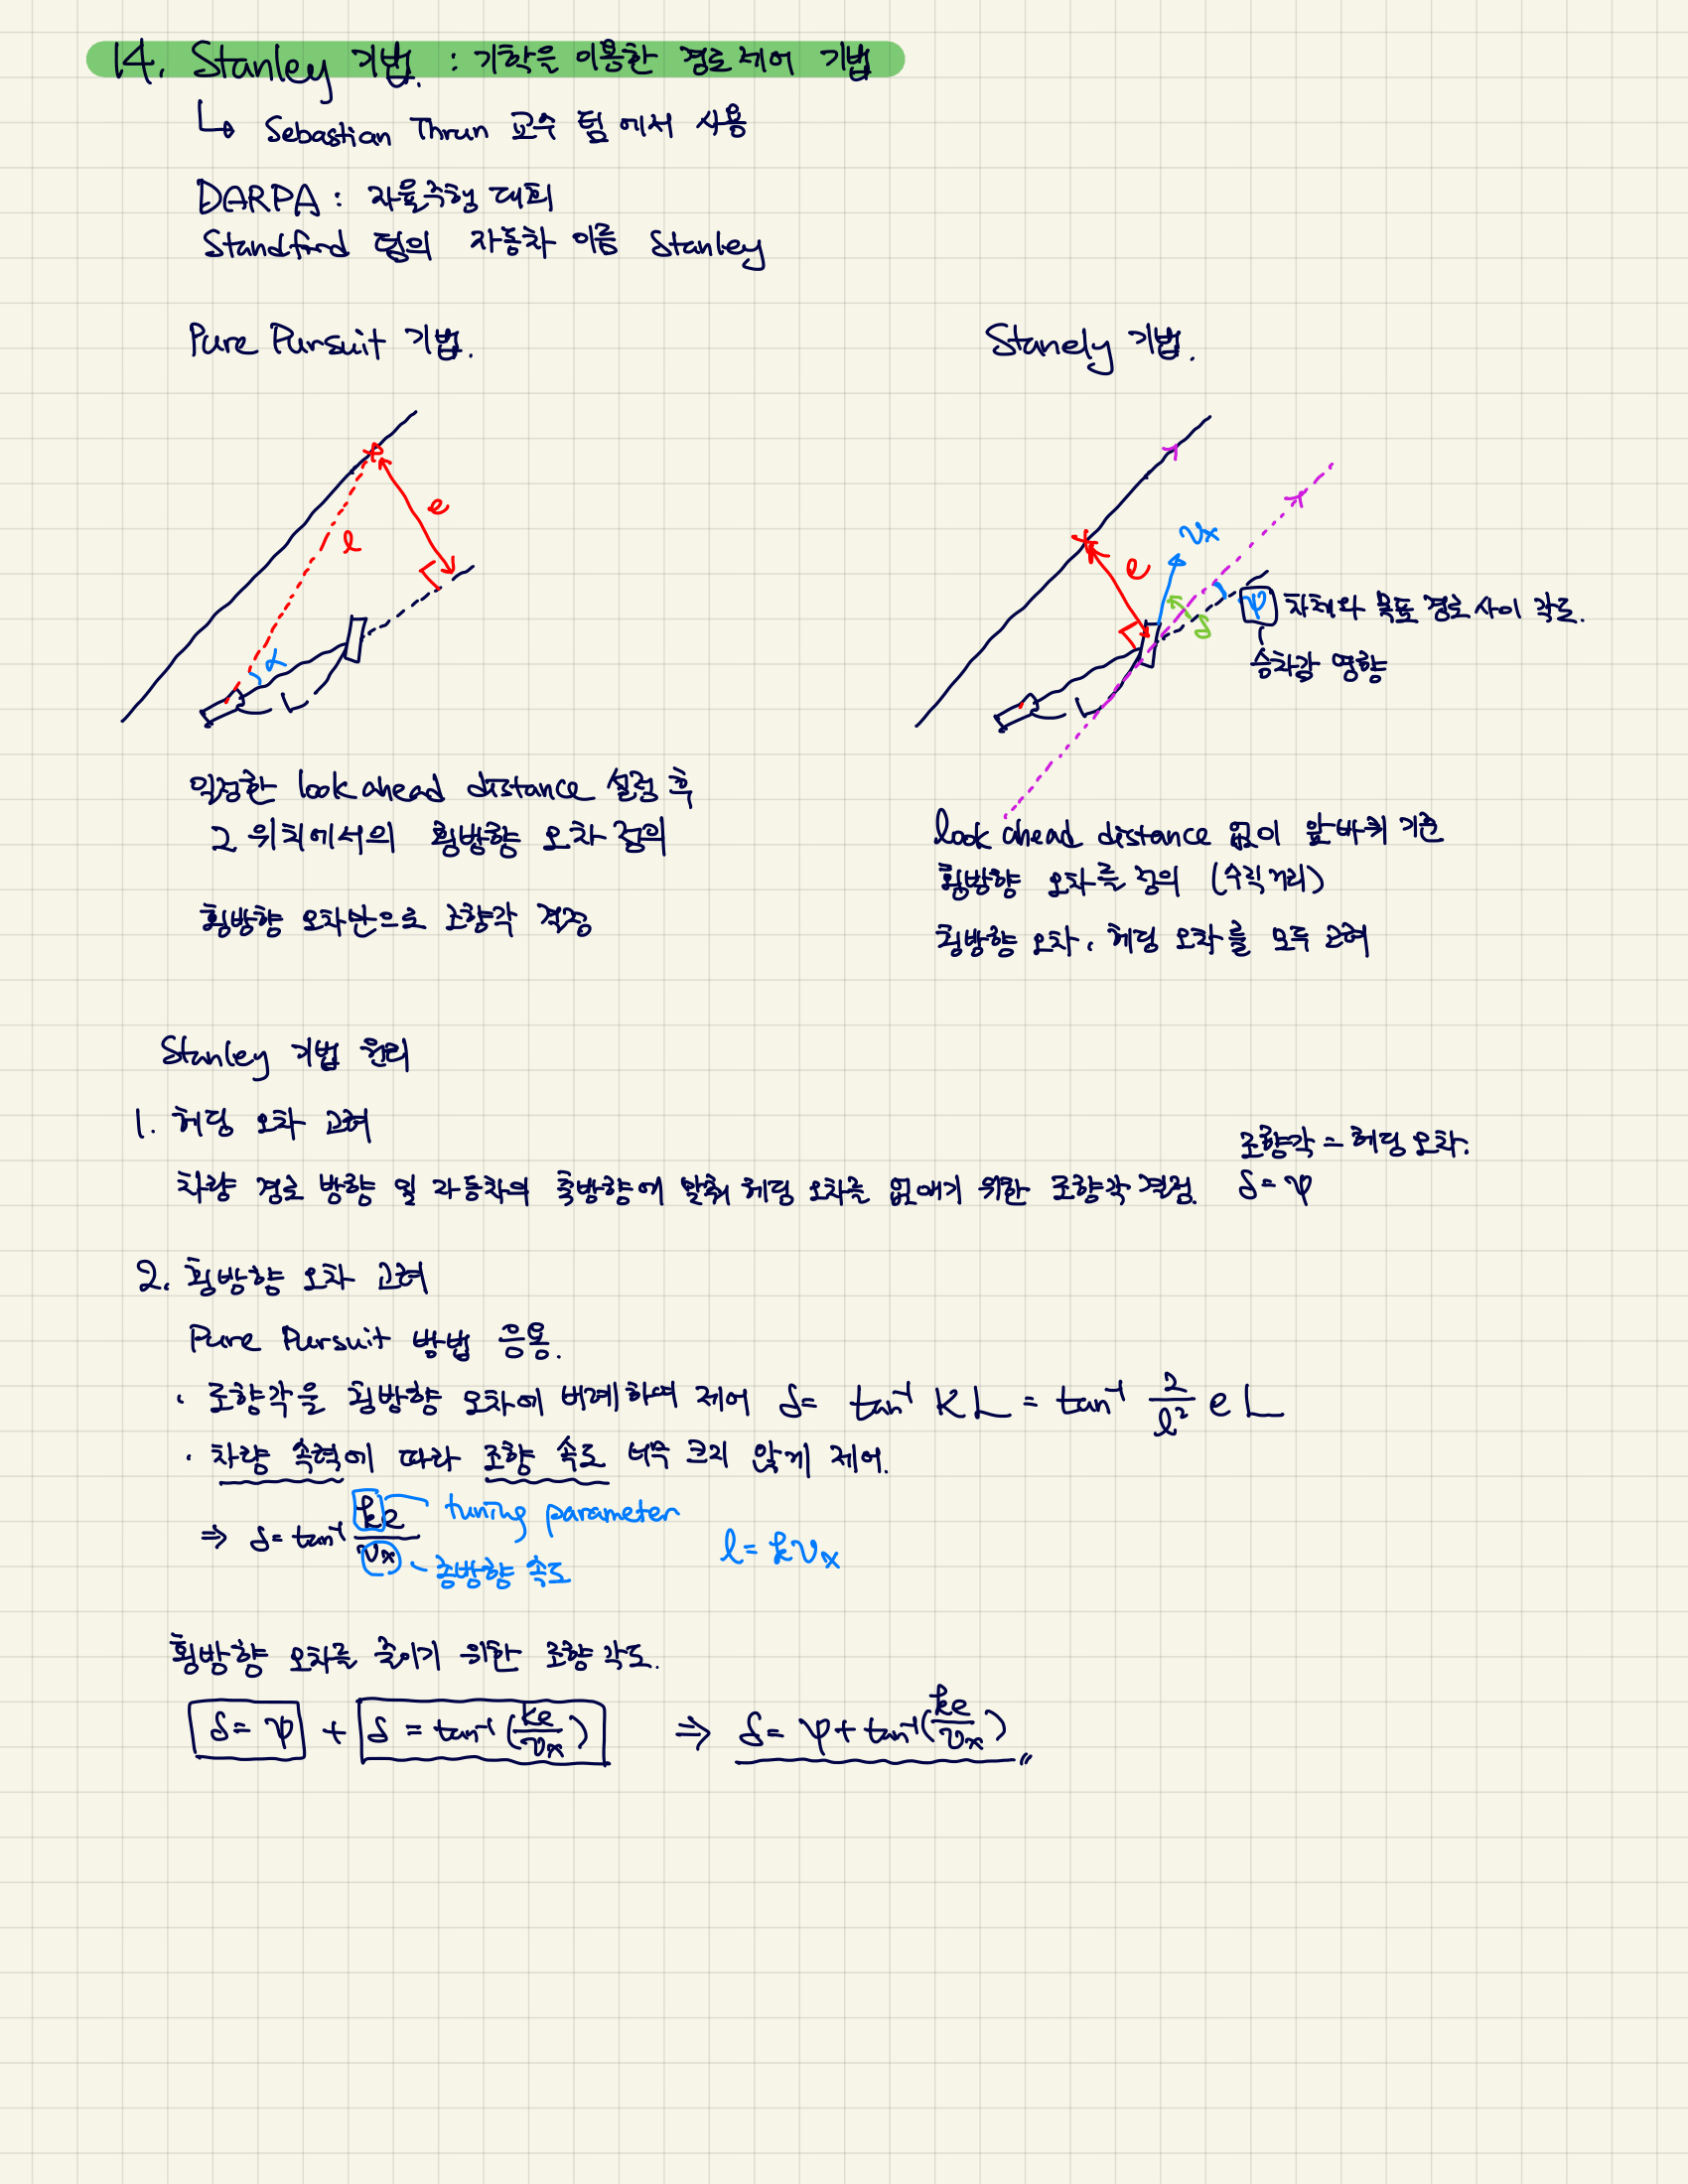 14. Stanley 기법. : 기학을 이용한 경로 제어 기법
↳ Sebastian Thrun 교수 팀에서 사용
DARPA : 자율주행 대회
Standford 팀의 자동차 이름 Stanley
Pure Pursuit 기법.
Stanely 기법.
e
l
α
L
vx
e
δ
ψ 차체와 목표 경로 사이 각도.
승차감 영향
L
일정한 look ahead distance 설정 후
그 위치에서의 횡방향 오차 정의
횡방향 오차만으로 조향각 결정
look ahead distance 없이 앞바퀴 기준
횡방향 오차를 정의 (수직거리)
횡방향 오차, 헤딩 오차를 모두 고려
Stanley 기법 원리
1. 헤딩 오차 고려
조향각 = 헤딩 오차.
차량 경로 방향 및 자동차의 축방향에 맞춰 헤딩 오차를 없애기 위한 조향각 결정. δ = ψ
2. 횡방향 오차 고려
Pure Pursuit 방법 응용.
· 조향각을 횡방향 오차에 비례하여 제어 δ = tan⁻¹ KL = tan⁻¹ 2/l² e L
· 차량 속력에 따라 조향 속도 너무 크지 않게 제어.
⇒ δ = tan⁻¹ ke/vx
tuning parameter
종방향 속도
l = kvx
횡방향 오차를 줄이기 위한 조향 각도.
δ = ψ + δ = tan⁻¹(ke/vx) ⇒ δ = ψ + tan⁻¹(ke/vx)〃